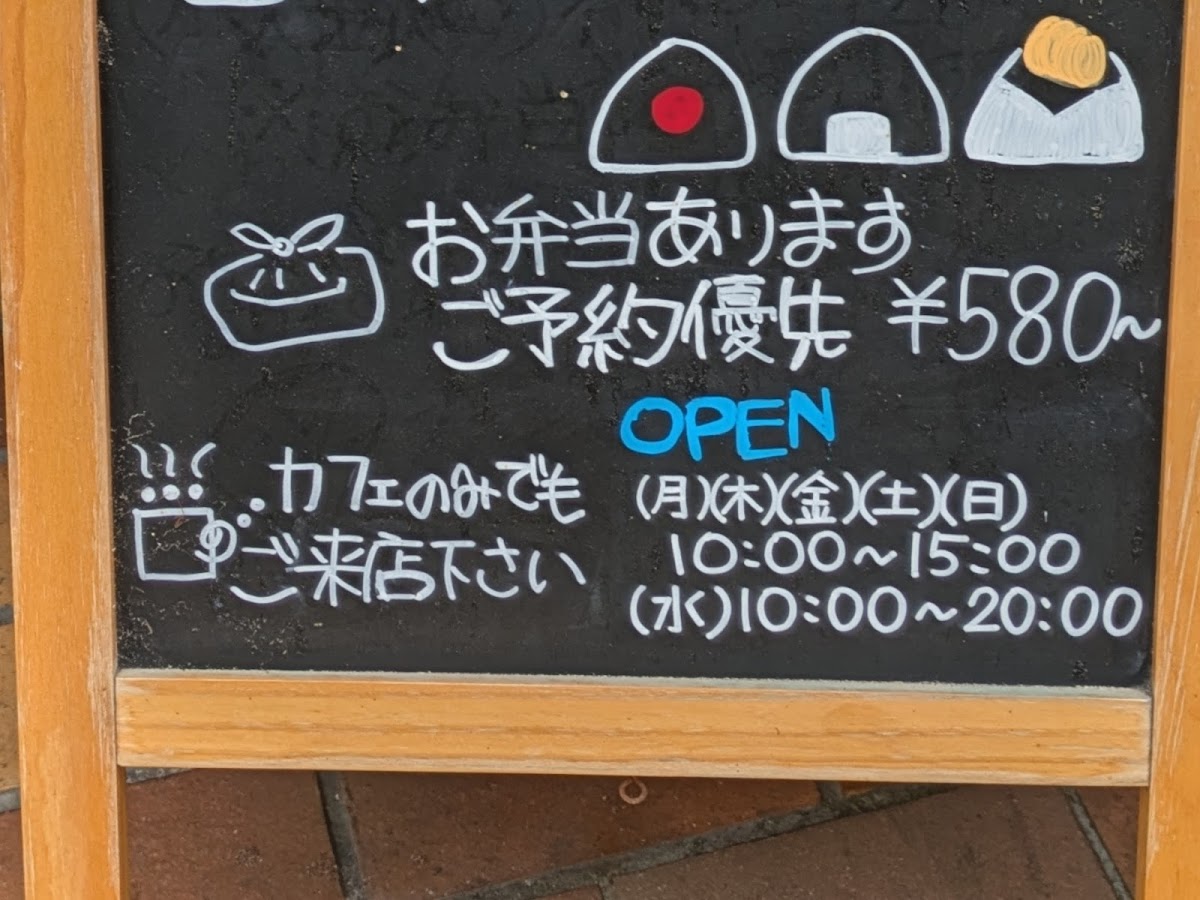 お弁当あります
ご予約優先 ¥580~
OPEN
カフェのみでも
ご来店下さい
(月)(木)(金)(土)(日)
10:00~15:00
(水)10:00~20:00